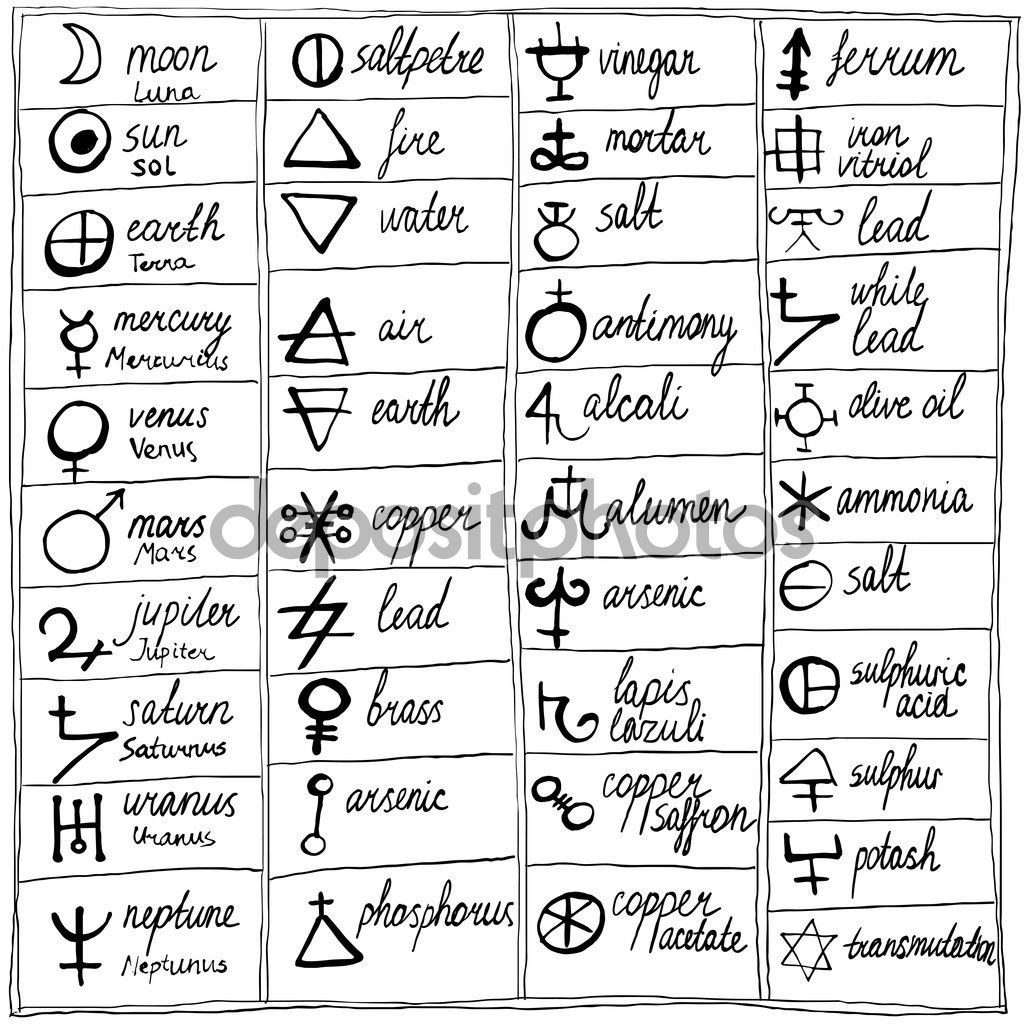 moon
Luna
sun
sol
earth
Terra
mercury
Mercurius
venus
Venus
mars
Mars
jupiter
Jupiter
saturn
Saturnus
uranus
Uranus
neptune
Neptunus
saltpetre
fire
water
air
earth
copper
lead
brass
arsenic
phosphorus
vinegar
mortar
salt
antimony
alcali
alumen
arsenic
lapis
lazuli
copper
saffron
copper
acetate
ferrum
iron
vitriol
lead
while
lead
olive oil
ammonia
salt
sulphuric
acid
sulphur
potash
transmutation
depositphotos